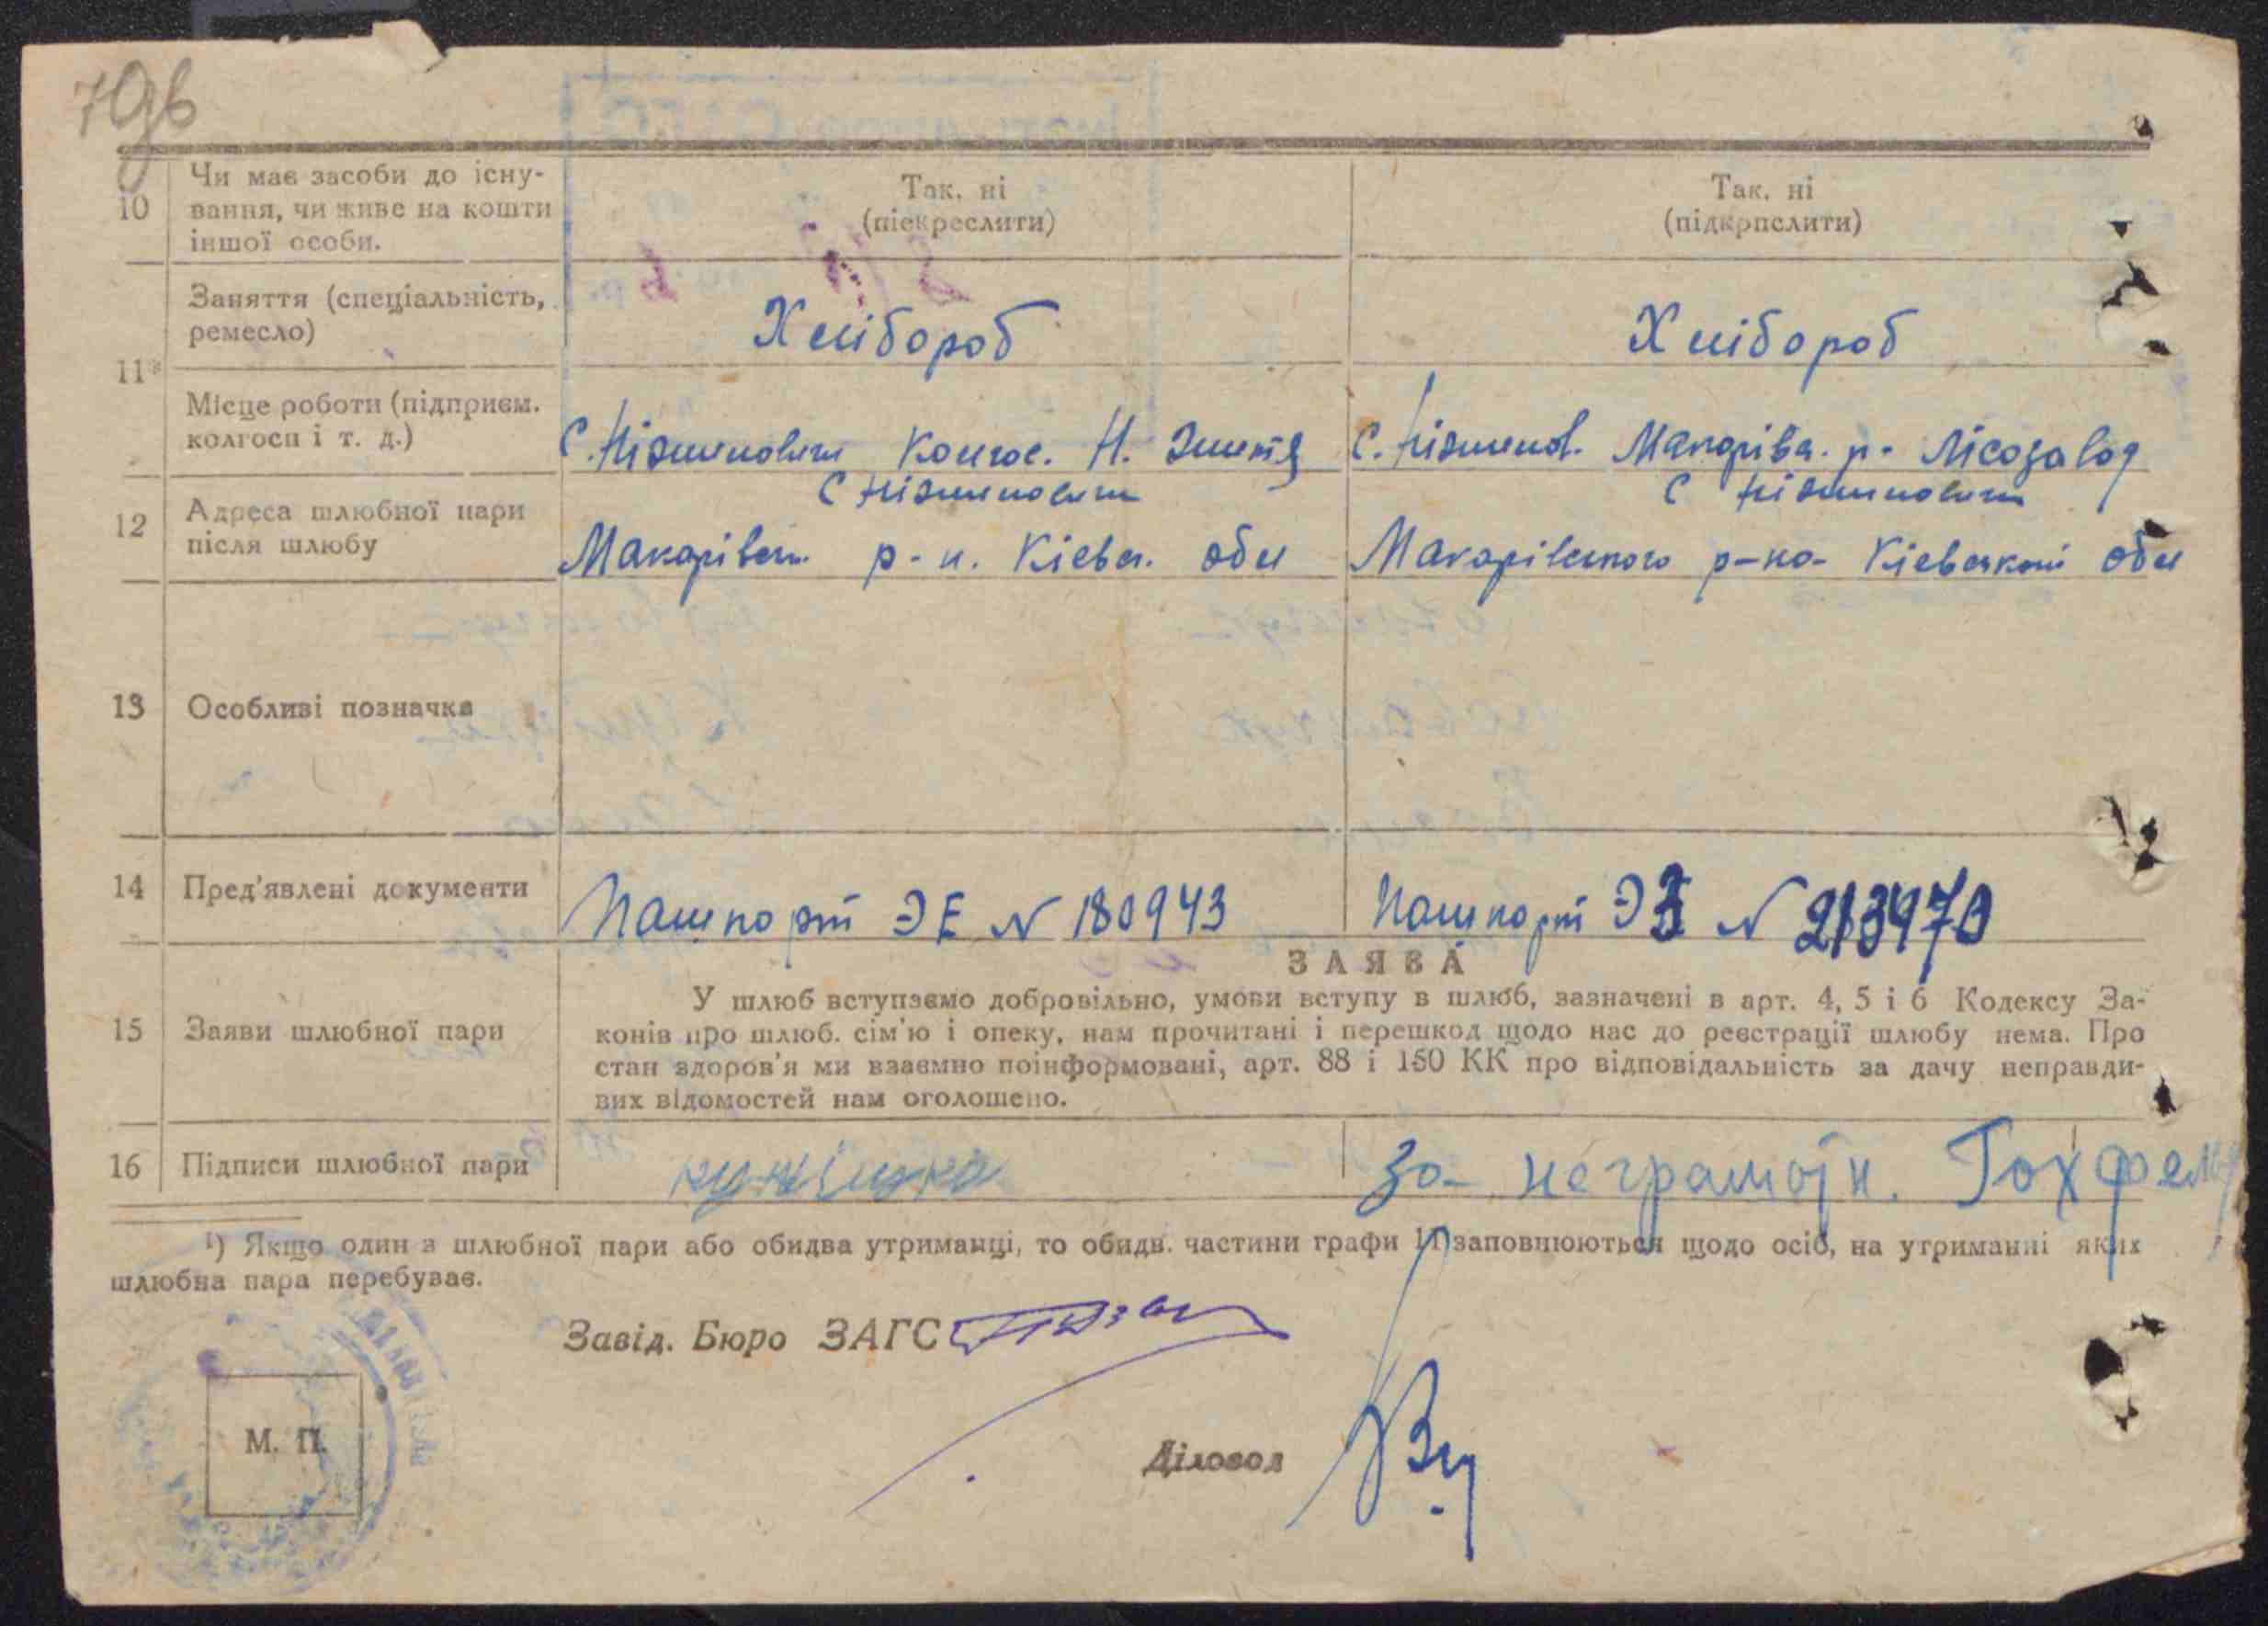 79б
10 Чи має засоби до існу-
вання, чи живе на кошти
іншої особи.
Так, ні
(піекреслити)
Так, ні
(підкрпслити)
11* Заняття (спеціальність,
ремесло)
Хлібороб
Хлібороб
Місце роботи (підприєм.
колгосп і т. д.)
Н. Життя
Лісозавод
12 Адреса шлюбної пари
після шлюбу
Макарівськ. р-н. Кіевск. обл
Макарівського р-на Кіевської обл
13 Особливі позначка
14 Пред'явлені документи
Пашпорт ЭЕ N 180943
Пашпорт N 213470
15 Заяви шлюбної пари
ЗАЯВА
У шлюб вступаємо добровільно, умови вступу в шлюб, зазначені в арт. 4, 5 і 6 Кодексу За-
конів про шлюб. сім'ю і опеку, нам прочитані і перешкод щодо нас до реєстрації шлюбу нема. Про
стан здоров'я ми взаємно поінформовані, арт. 88 і 150 КК про відповідальність за дачу неправди-
вих відомостей нам оголошено.
16 Підписи шлюбної пари
за неграмотн.
¹) Якщо один з шлюбної пари або обидва утриманці, то обидв. частини графи 11 заповнюються щодо осіб, на утриманні яких
шлюбна пара перебуває.
Завід. Бюро ЗАГС
М. П.
Діловод